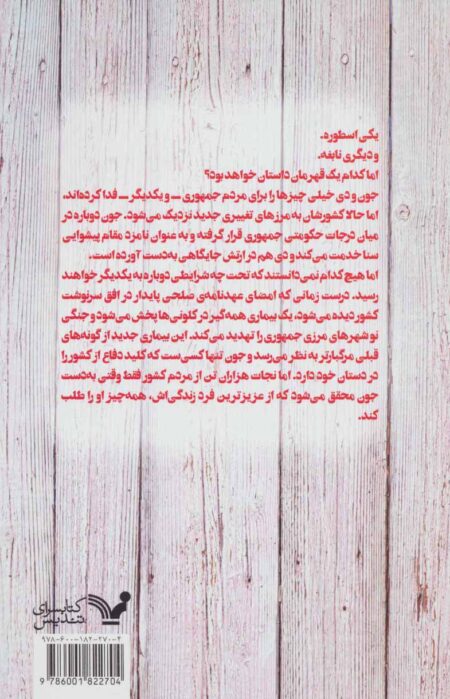 یکی اسطوره.
و دیگری نابغه.
اما کدام یک قهرمان داستان خواهد بود؟
جون و دی خیلی چیزها را برای مردم جمهوری ــ و یکدیگر ــ فدا کرده‌اند،
اما حالا کشورشان به مرزهای تغییری جدید نزدیک می‌شود. جون دوباره در
میان درجات حکومتی جمهوری قرار گرفته و به عنوان نامزد مقام پیشوایی
سنا خدمت می‌کند و دی هم در ارتش جایگاهی به‌دست آورده است.
اما هیچ کدام نمی‌دانستند که تحت چه شرایطی دوباره به یکدیگر خواهند
رسید. درست زمانی که امضای عهدنامه‌ی صلحی پایدار در افق سرنوشت
کشور دیده می‌شود، یک بیماری همه‌گیر در کلونی‌ها پخش می‌شود و جنگی
نو شهرهای مرزی جمهوری را تهدید می‌کند. این بیماری جدید از گونه‌های
قبلی مرگبارتر به نظر می‌رسد و جون تنها کسی‌ست که کلید دفاع از کشور را
در دستان خود دارد. اما نجات هزاران تن از مردم کشور فقط وقتی به‌دست
جون محقق می‌شود که از عزیزترین فرد زندگی‌اش، همه‌چیز او را طلب
کند.
کتابسرای
تندیس
۹۷۸-۶۰۰-۱۸۲-۲۷۰-۴
9 786001 822704